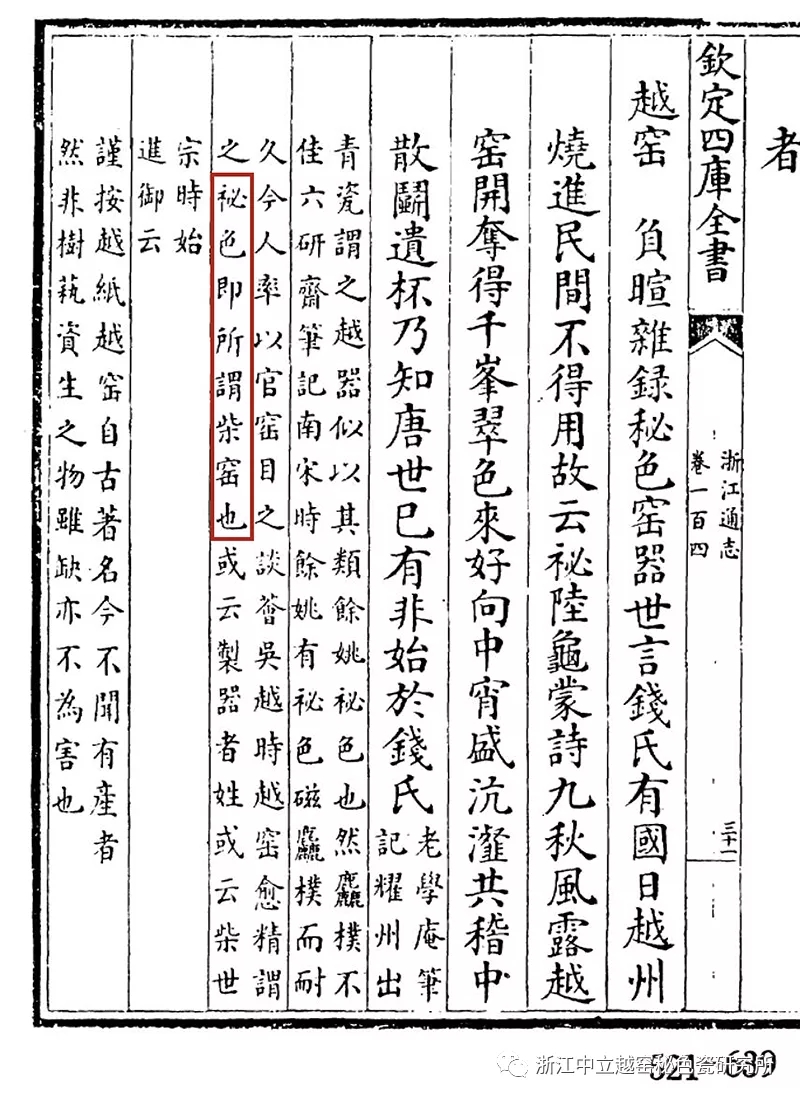 者
欽定四庫全書
浙江通志
卷一百四
三十一
越窑 負暄雜録秘色窑器世言錢氏有國日越州
燒進民間不得用故云祕陸龜蒙詩九秋風露越
窑開奪得千峯翠色來好向中宵盛沆瀣共稽中
散鬭遺杯乃知唐世已有非始於錢氏
老學庵筆
記耀州出
青瓷謂之越器似以其類餘姚祕色也然麤樸不
佳六研齋筆記南宋時餘姚有祕色磁麤樸而耐
久今人率以官窑目之談薈吳越時越窑愈精謂
之祕色即所謂柴窑也或云製器者姓或云柴世
宗時始
進御云
謹按越紙越窑自古著名今不聞有產者
然非樹蓺資生之物雖缺亦不為害也
521-639
浙江中立越窑秘色瓷研究所